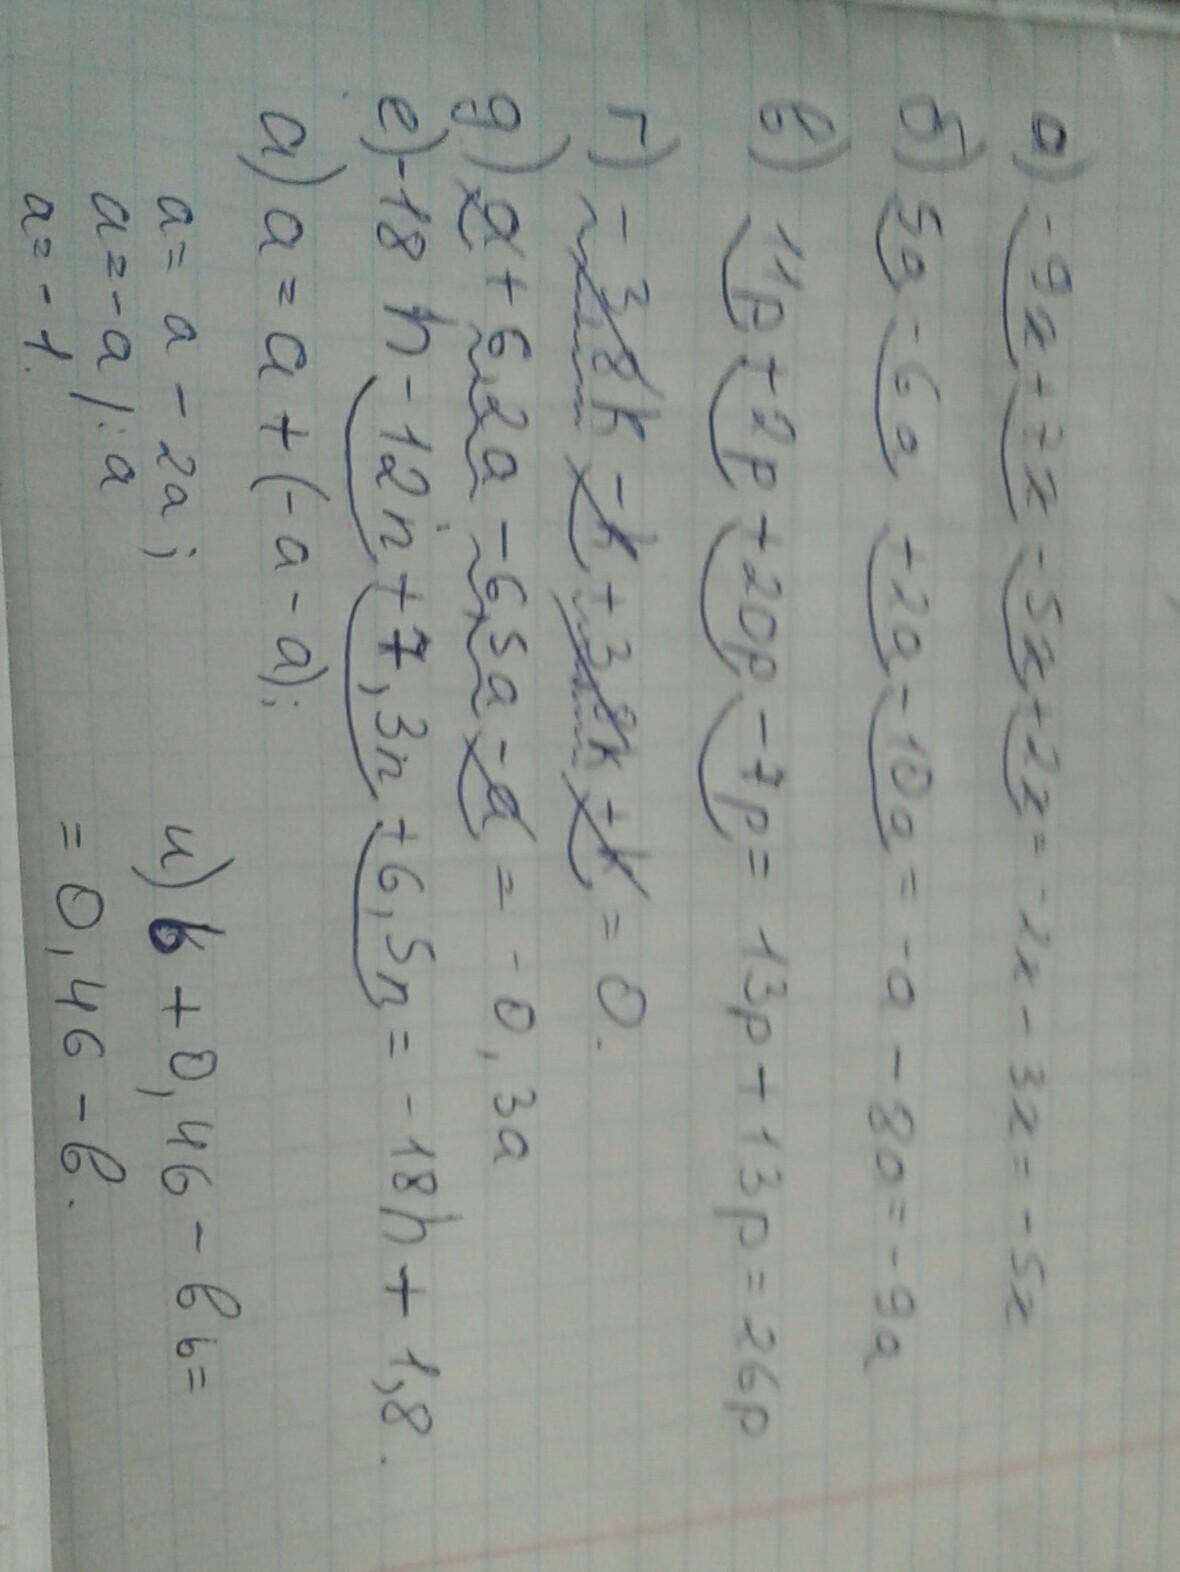 а) -9x+7x-5x+2x= -2x-3x= -5x
б) 5a-6a+2a-10a= -a-8a= -9a
в) 11p+2p+20p-7p= 13p+13p=26p
г) -3,8k-k+3,8k+k=0.
д) a+6,2a-6,5a-a= -0,3a
е) -18h-12n+7,3n+6,5n= -18h+1,8.
а) a=a+(-a-a);
a=a-2a;
a=-a/:a
a=-1.
и) b+0,4b-bb=
=0,4b-b.